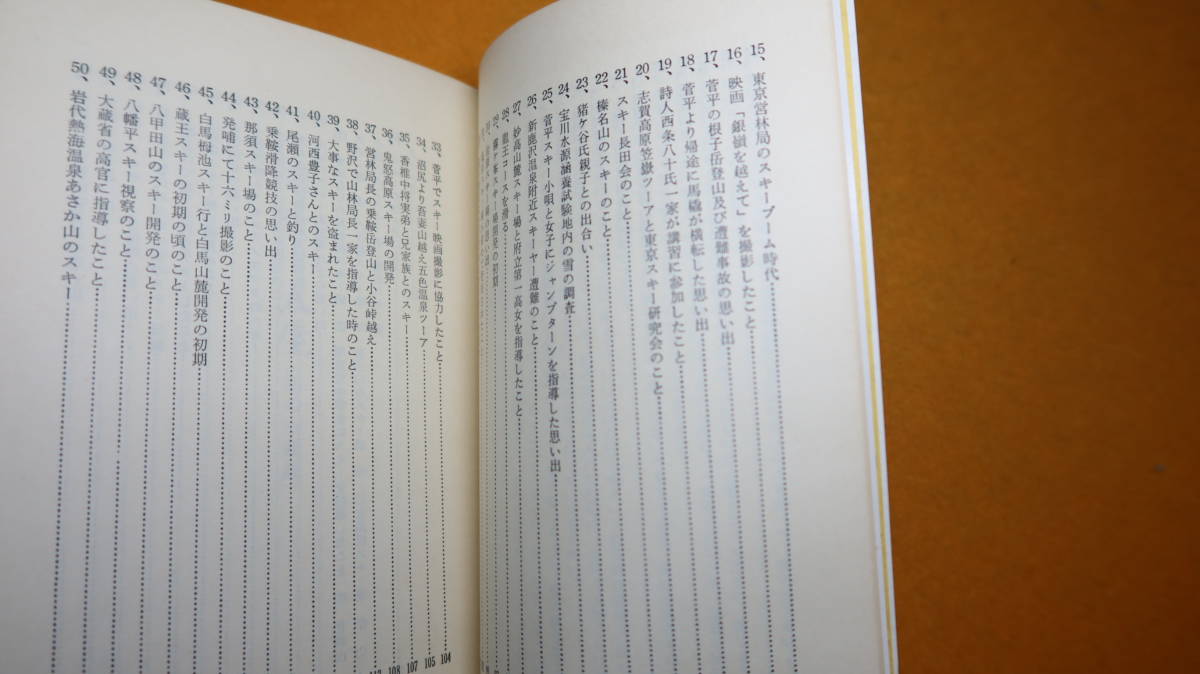 15、東京営林局のスキーブーム時代
16、映画「銀嶺を越えて」を撮影したこと
17、菅平の根子岳登山及び遭難事故の思い出
18、菅平より帰途に馬橇が横転した思い出
19、詩人西条八十氏一家が講習に参加したこと
20、志賀高原笠嶽ツーアと東京スキー研究会のこと
21、スキー長田会のこと
22、榛名山のスキーのこと
23、猪ケ谷氏親子との出合い
24、宝川水源涵養試験地内の雪の調査
25、菅平スキー小唄と女子にジャンプターンを指導した思い出
26、新鹿沢温泉附近スキーヤー遭難のこと
27、妙高山麓スキー場と府立第一高女を指導したこと
28、蔵王コースを滑る
29、霧ケ峯スキー場開発の初期
33、菅平でスキー映画撮影に協力したこと 104
34、沼尻より吾妻山越え五色温泉ツーア 105
35、香椎中将実弟と兄家族とのスキー 107
36、鬼怒高原スキー場の開発 108
37、営林局長の乗鞍岳登山と小谷峠越え
38、野沢で山林局長一家を指導した時のこと
39、大事なスキーを盗まれたこと
40、河西豊子さんとのスキー
41、尾瀬のスキーと釣り
42、乗鞍滑降競技の思い出
43、那須スキー場のこと
44、発哺にて十六ミリ撮影のこと
45、白馬栂池スキー行と白馬山麓開発の初期
46、蔵王スキーの初期の頃のこと
47、八甲田山のスキー開発のこと
48、八幡平スキー視察のこと
49、大蔵省の高官に指導したこと
50、岩代熱海温泉あさか山のスキー